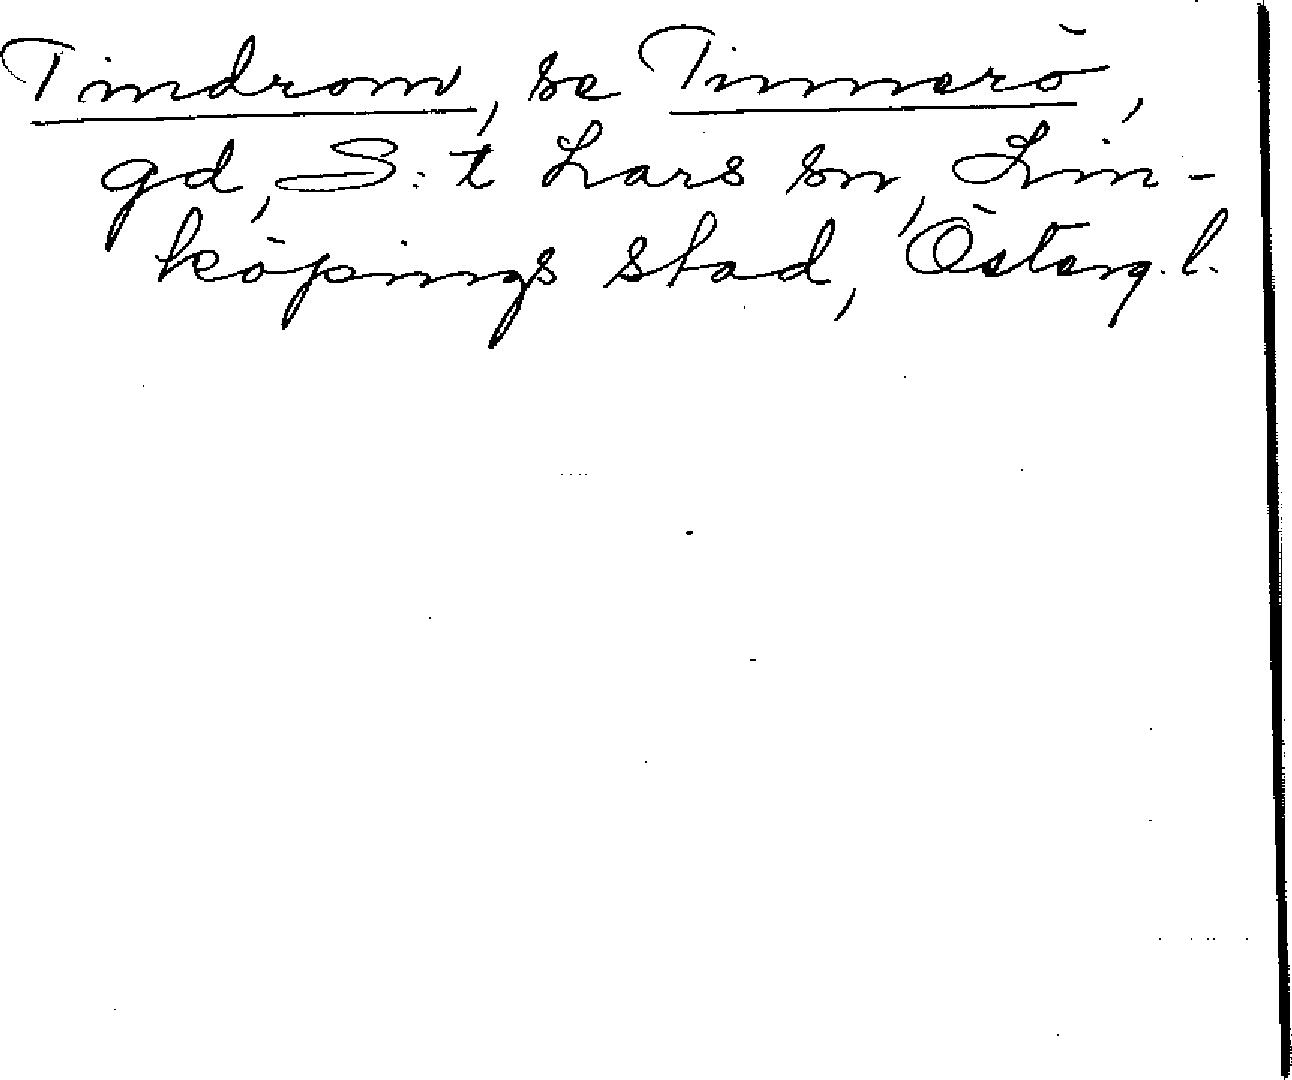 Tindrom, se Tinnerö,
gd, S:t Lars sn, Lin-
köpings stad, Österg. l.